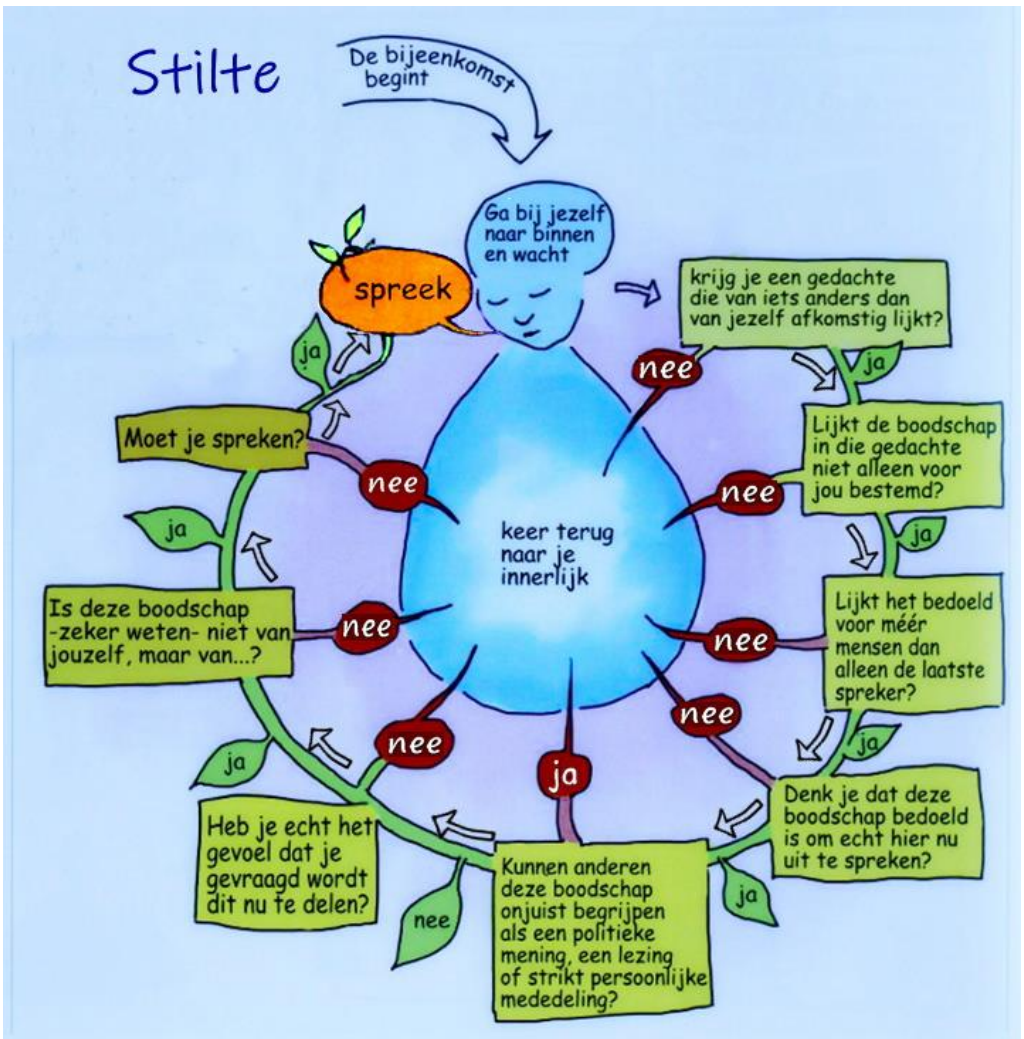 Stilte
De bijeenkomst
begint
Ga bij jezelf
naar binnen
en wacht
krijg je een gedachte
die van iets anders dan
van jezelf afkomstig lijkt?
nee
ja
Lijkt de boodschap
in die gedachte
niet alleen voor
jou bestemd?
nee
ja
Lijkt het bedoeld
voor méér
mensen dan
alleen de laatste
spreker?
nee
ja
Denk je dat deze
boodschap bedoeld
is om echt hier nu
uit te spreken?
nee
ja
Kunnen anderen
deze boodschap
onjuist begrijpen
als een politieke
mening, een lezing
of strikt persoonlijke
mededeling?
ja
nee
Heb je echt het
gevoel dat je
gevraagd wordt
dit nu te delen?
nee
ja
Is deze boodschap
-zeker weten- niet van
jouzelf, maar van...?
nee
ja
Moet je spreken?
nee
ja
spreek
keer terug
naar je
innerlijk